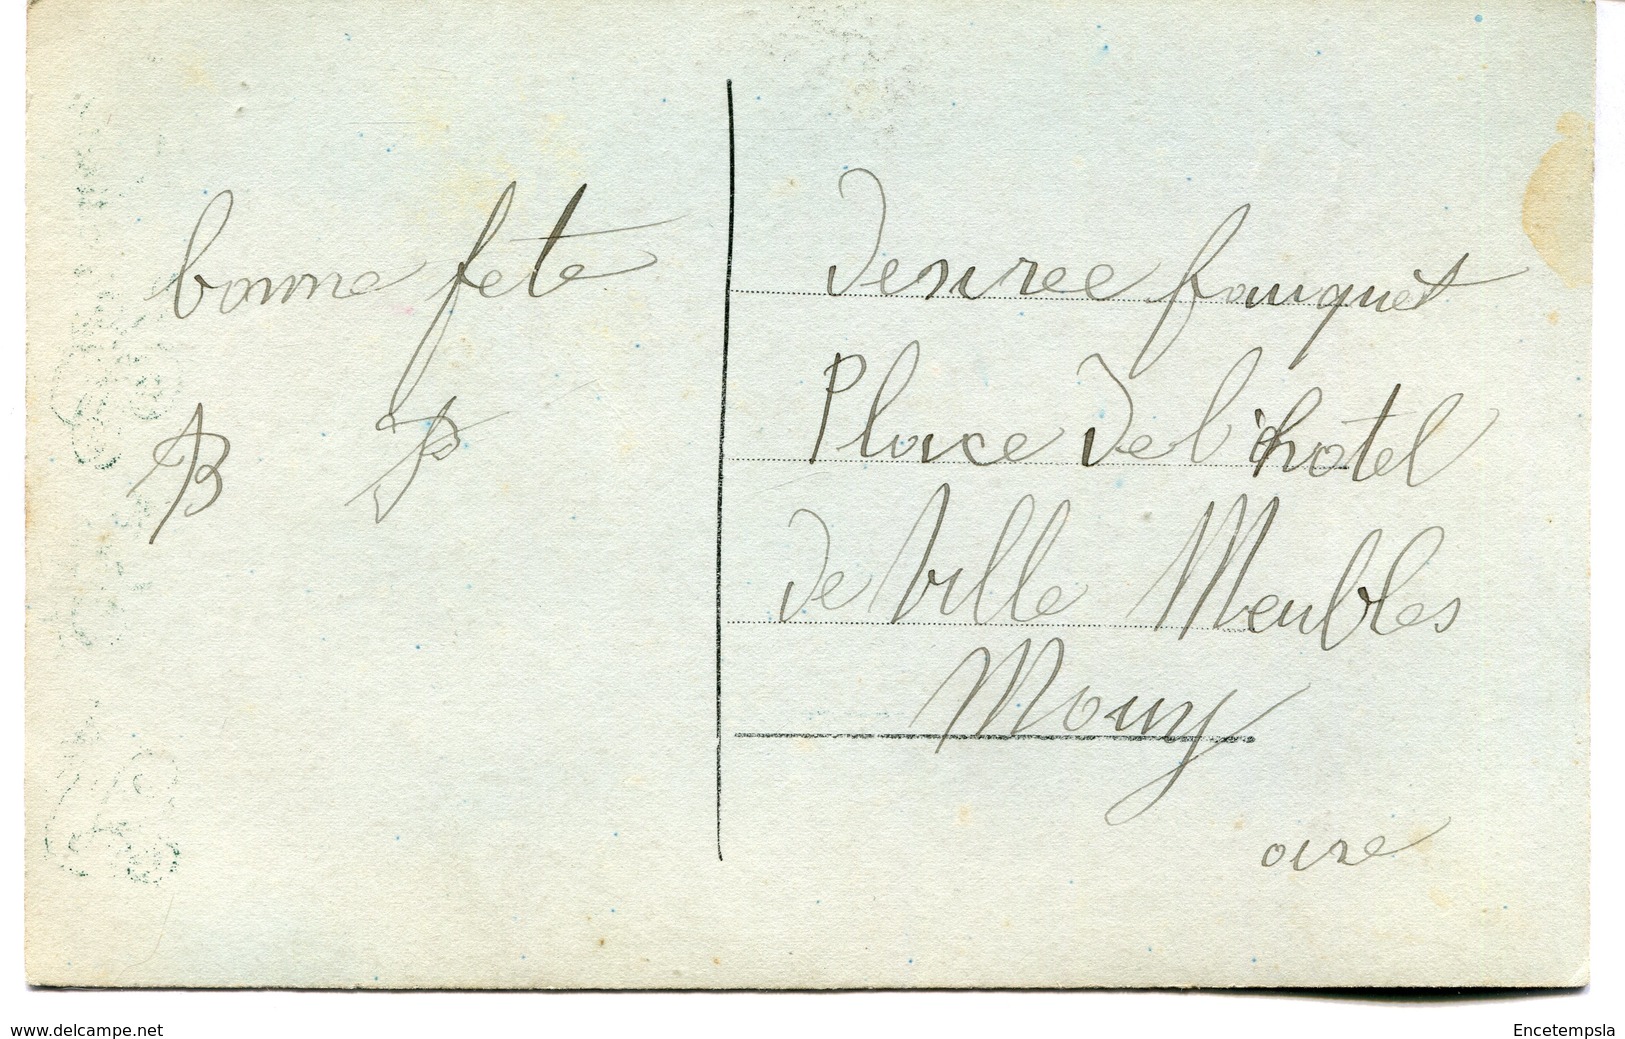 bonne fete
B P
desiree fouquet
Place de l'hotel
de Ville Meubles
Mouy
oise
www.delcampe.net
Encetempsla